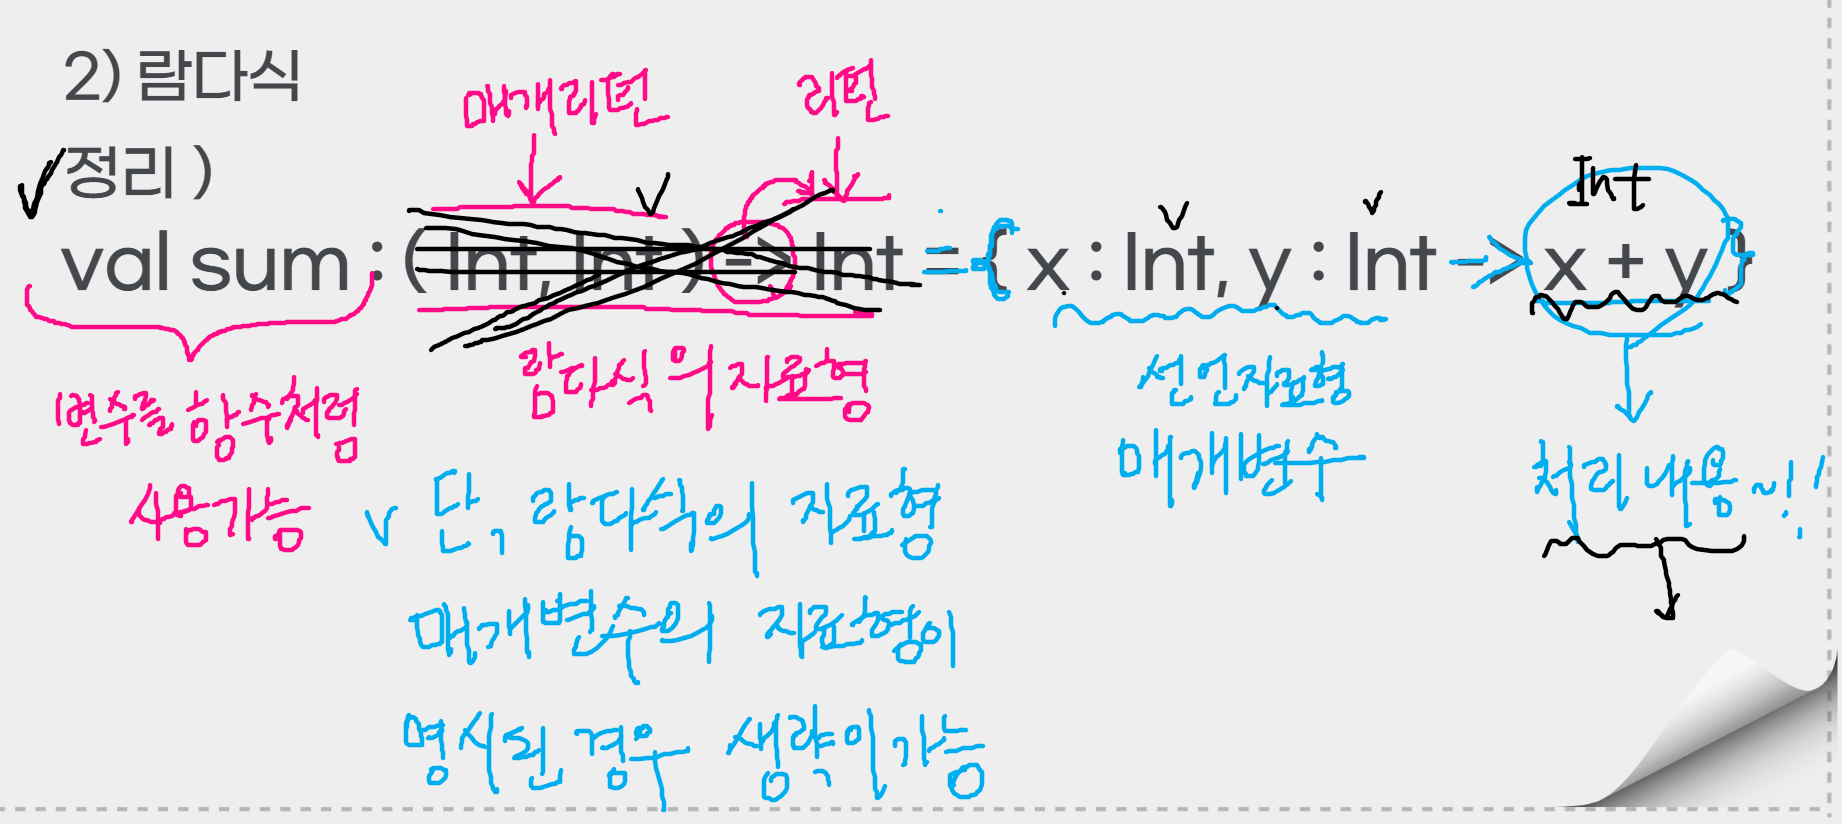 2) 람다식
정리 )
매개리턴
리턴
Int
val sum : ( Int, Int ) -> Int = { x : Int, y : Int -> x + y }
변수를 함수처럼
사용가능
람다식의 자료형
선언자료형
매개변수
처리 내용~!!
단, 람다식의 자료형
매개변수의 자료형이
명시된 경우 생략이 가능